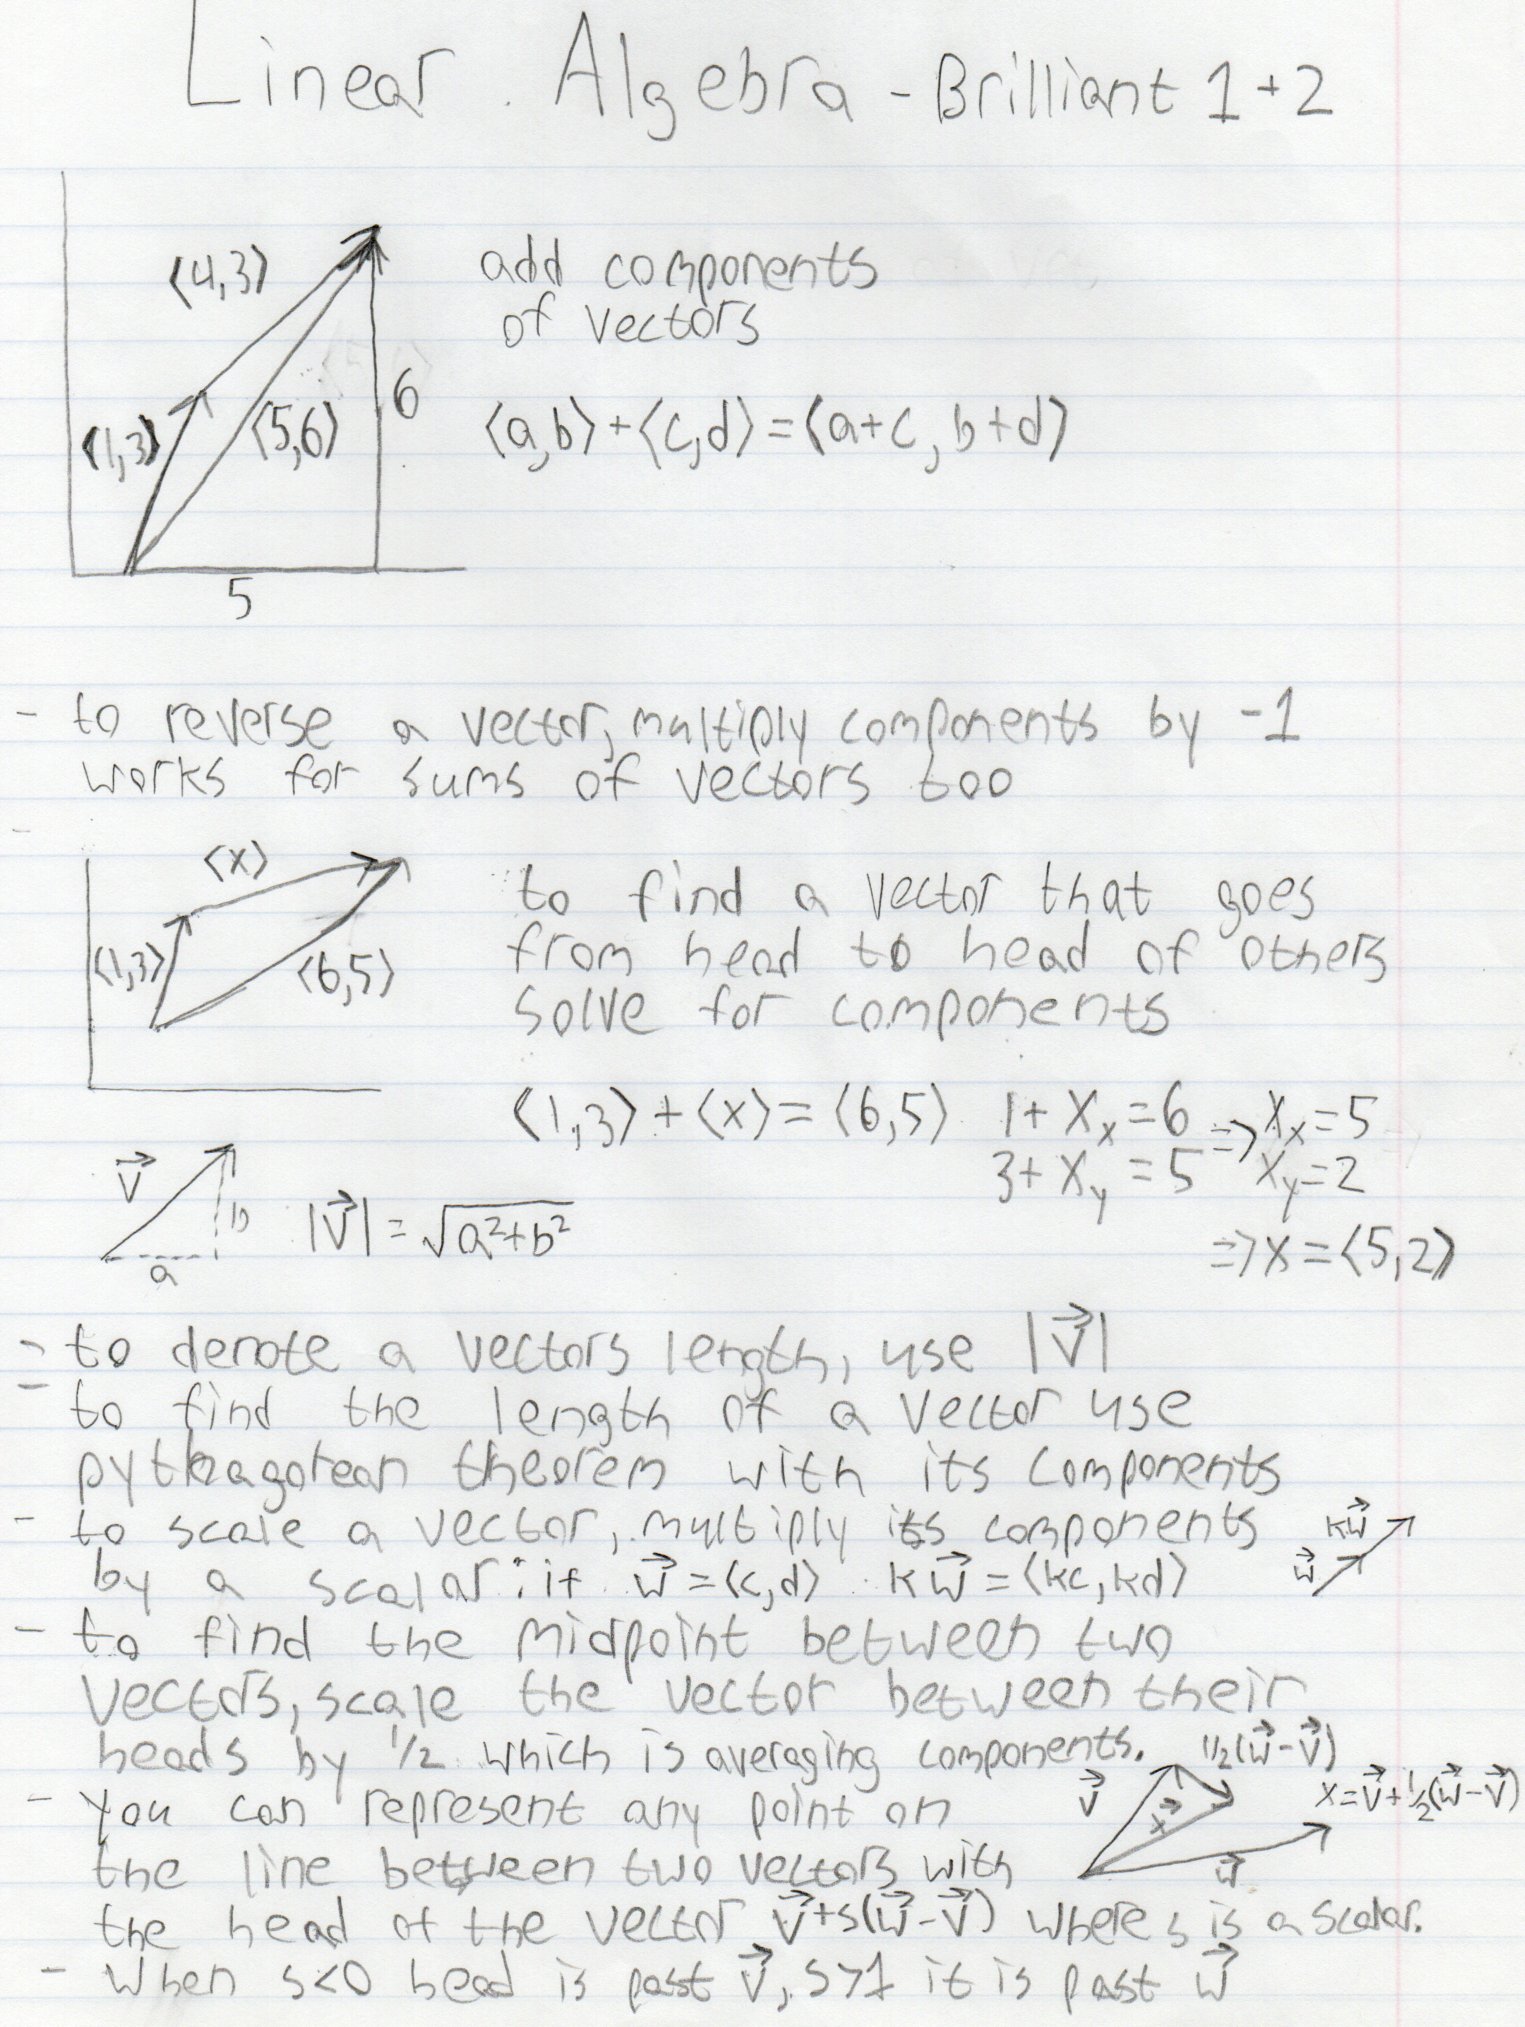 Linear Algebra - Brilliant 1+2
⟨4,3⟩
add components
of vectors
⟨1,3⟩
⟨5,6⟩
6
⟨a,b⟩+⟨c,d⟩=⟨a+c, b+d⟩
5
- to reverse a vector, multiply components by -1
works for sums of vectors too
-
⟨x⟩
to find a vector that goes
⟨1,3⟩
⟨6,5⟩
from head to head of others
solve for components
⟨1,3⟩+⟨x⟩=⟨6,5⟩ 1+Xₓ=6 ⇒ Xₓ=5
3+X_y=5 X_y=2
⇒x=⟨5,2⟩
v⃗
b
a
|v⃗|=√(a²+b²)
- to denote a vectors length, use |v⃗|
- to find the length of a vector use
pythagorean theorem with its components
- to scale a vector, multiply its components
by a scalar: if w⃗=⟨c,d⟩ kw⃗=⟨kc,kd⟩
kw⃗
w⃗
- to find the midpoint between two
vectors, scale the vector between their
heads by 1/2 which is averaging components.
v⃗
1/2(w⃗-v⃗)
x⃗
x=v⃗+1/2(w⃗-v⃗)
w⃗
- you can represent any point on
the line between two vectors with
the head of the vector v⃗+s(w⃗-v⃗) where s is a scalar.
- When s<0 head is past v⃗, s>1 it is past w⃗